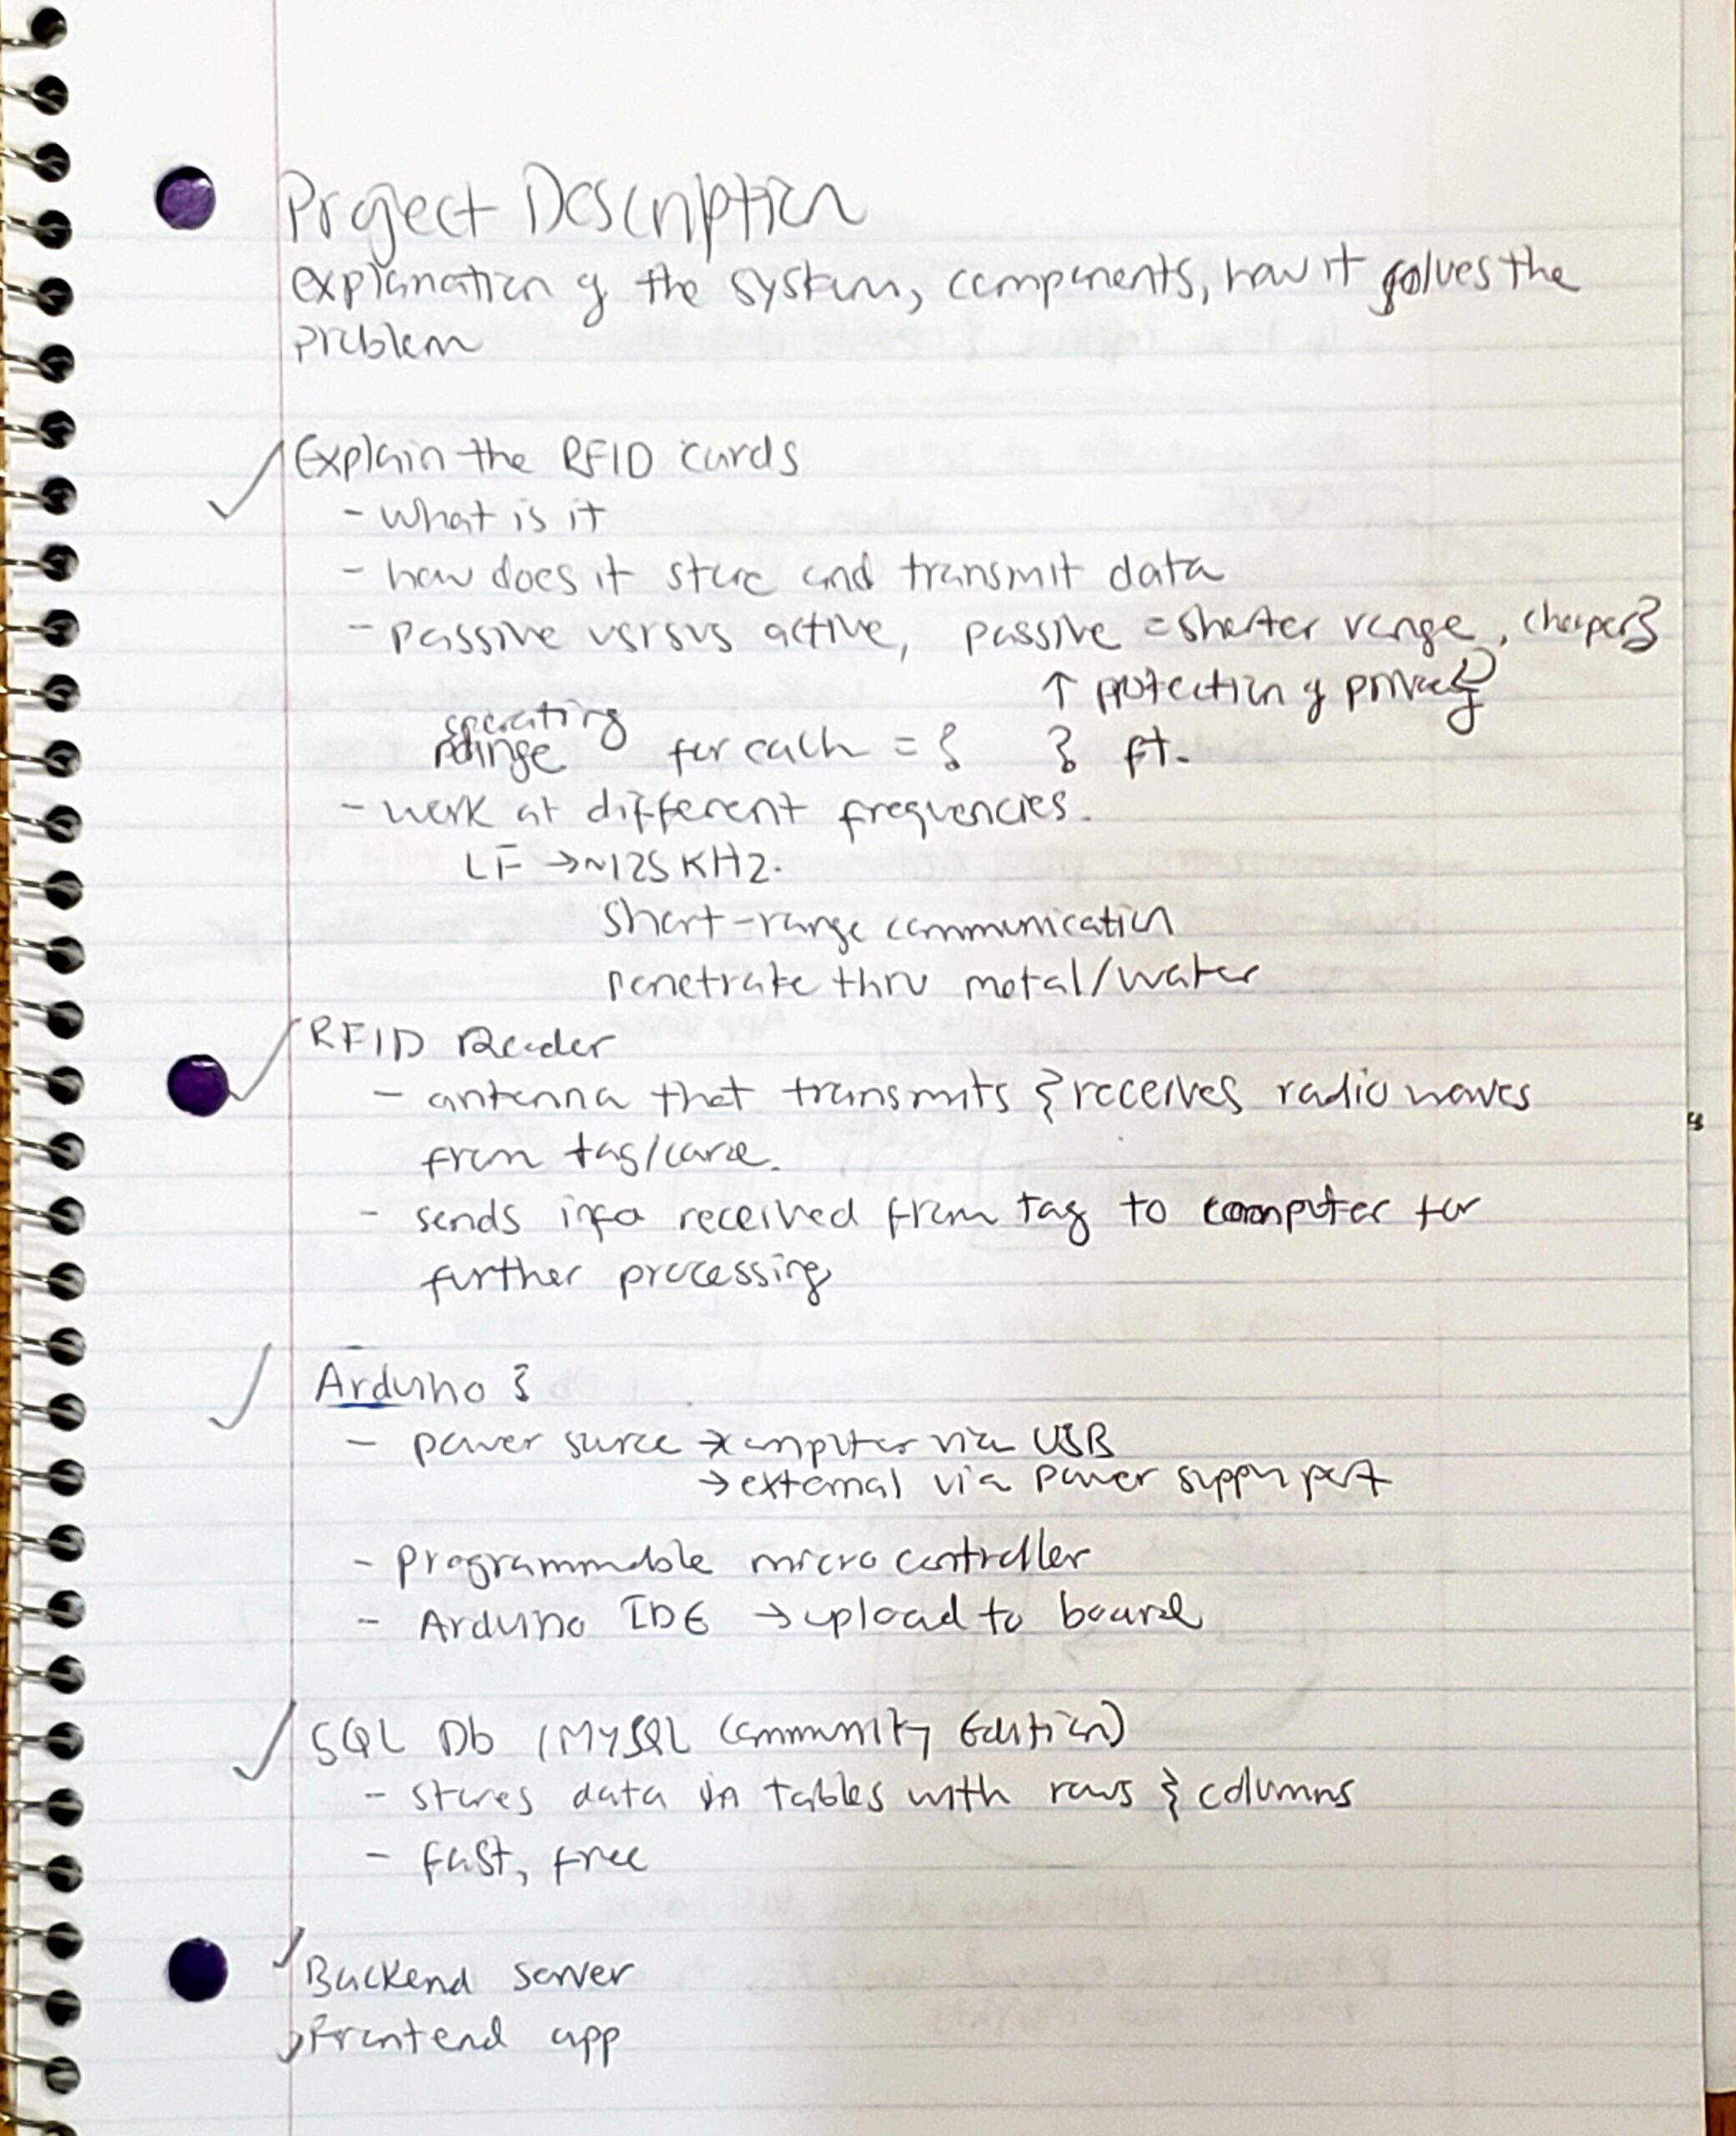 Project Description
explanation of the system, components, how it solves the
problem
Explain the RFID cards
- what is it
- how does it store and transmit data
- passive versus active, passive = shorter range, cheaper &
↑ protection of privacy
operating
range for each = { } ft.
- work at different frequencies.
LF → ~125 KHZ.
short-range communication
penetrate thru metal/water
RFID Reader
- antenna that transmits & receives radio waves
from tag/card.
- sends info received from tag to computer for
further processing
Arduino 3
- power source → computer via USB
→ external via power supply port
- programmable micro controller
- Arduino IDE → upload to board
SQL Db (MySQL Community Edition)
- stores data in tables with rows & columns
- fast, free
Backend server
Frontend app